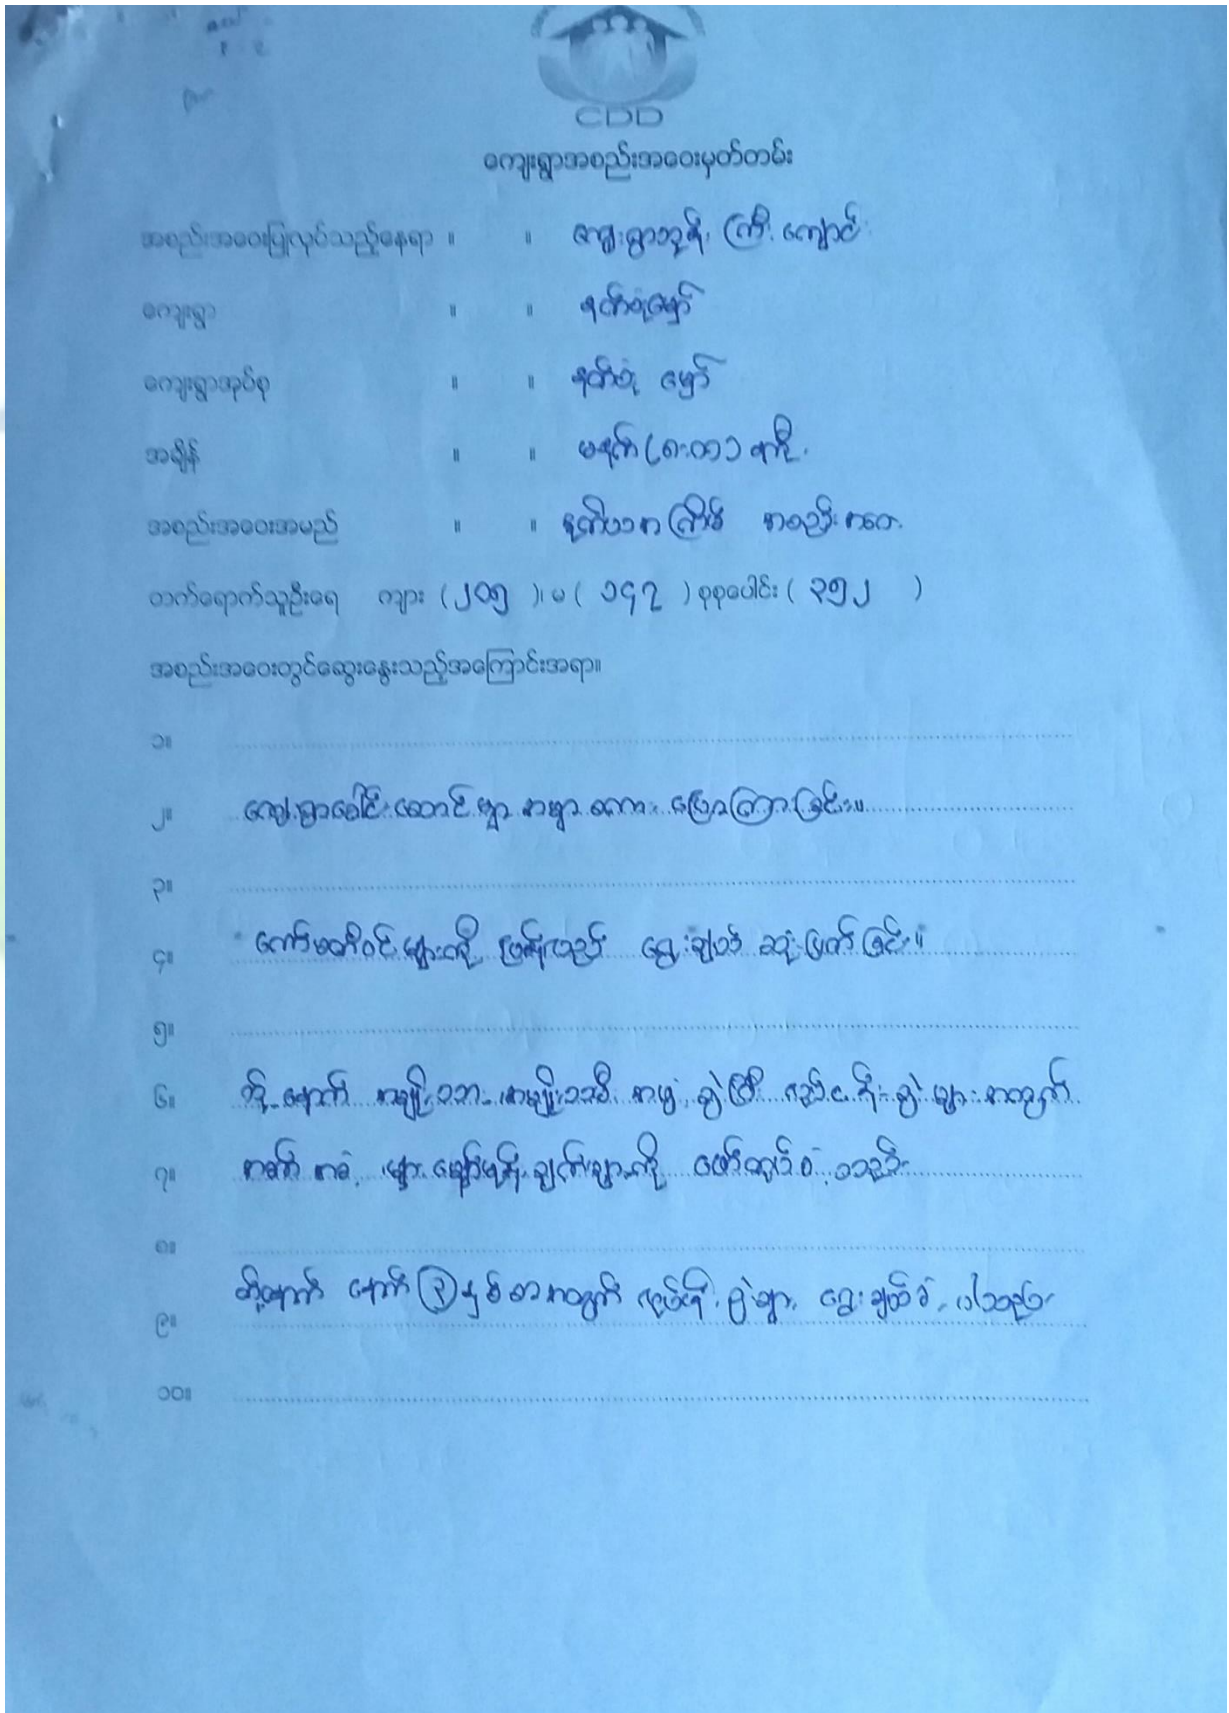 CDD
ကျေးရွာအစည်းအဝေးမှတ်တမ်း
အစည်းအဝေးပြုလုပ်သည့်နေရာ ။ ။ ကျေးရွာဘုန်းကြီးကျောင်း
ကျေးရွာ ။ ။ နတ်စုံမျှော်
ကျေးရွာအုပ်စု ။ ။ နတ်စုံမျှော်
အချိန် ။ ။ မနက် (၈:၀၀) နာရီ
အစည်းအဝေးအမည် ။ ။ စတုတ္ထအကြိမ် အစည်းအဝေး
တက်ရောက်သူဦးရေ ကျား (၂၀၅)၊ မ (၁၄၇) စုစုပေါင်း (၃၅၂)
အစည်းအဝေးတွင်ဆွေးနွေးသည့်အကြောင်းအရာ။
၁။
၂။ ကျေးရွာခေါင်းဆောင်များ အမှာစကားပြောကြားခြင်း။
၃။
၄။ ကော်မတီဝင်များကို ပြန်လည် ရွေးချယ် ဆုံးဖြတ်ခြင်း။
၅။
၆။ ထို့နောက် အမျိုးသား၊ အမျိုးသမီး အဖွဲ့ခွဲပြီး လုပ်ငန်းခွဲများအတွက်
၇။ အခက်အခဲများ မျှော်မှန်းချက်များကို ဖော်ထုတ်ခဲ့သည်
၈။
၉။ ထို့နောက် နောက် ၃ နှစ်စာအတွက် လုပ်ငန်းခွဲများ ရွေးချယ်ခဲ့ပါသည်
၁၀။